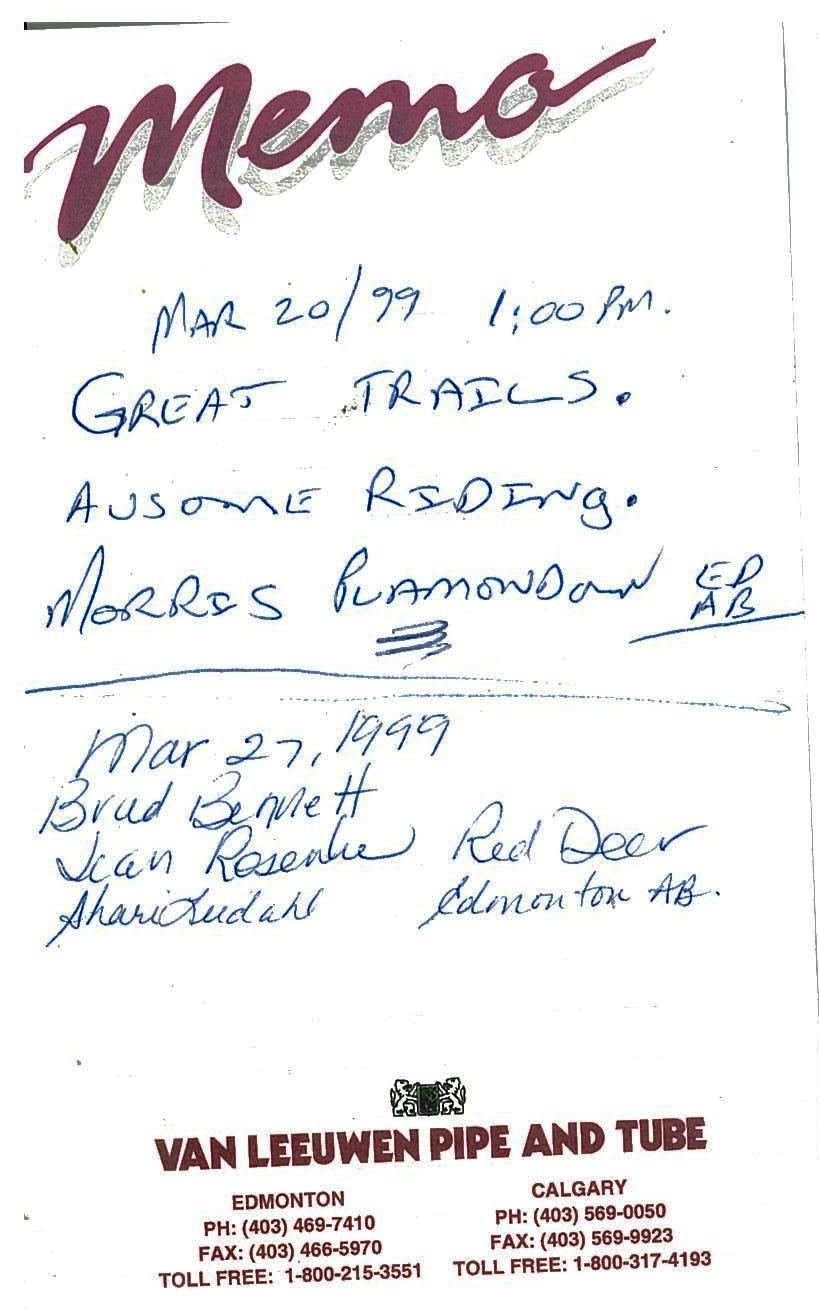 Memo
MAR 20/99 1:00 PM.
GREAT TRAILS.
AUSOME RIDING.
MORRIS PLAMONDON ED AB
Mar 27, 1999
Brad Bennett
Jean Red Deer
Shari Edmonton AB.
VAN LEEUWEN PIPE AND TUBE
EDMONTON
PH: (403) 469-7410
FAX: (403) 466-5970
TOLL FREE: 1-800-215-3551
CALGARY
PH: (403) 569-0050
FAX: (403) 569-9923
TOLL FREE: 1-800-317-4193